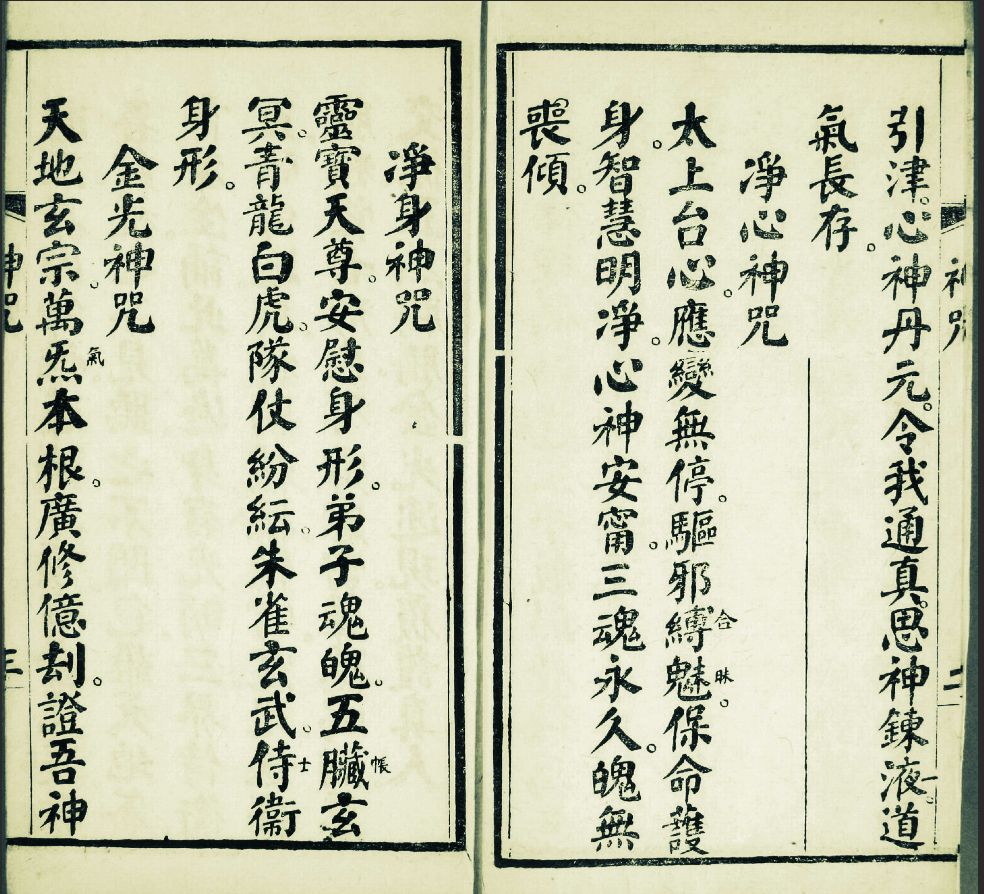 神咒
二
引津。心神丹元。令我通真。思神鍊液。道
氣長存。
凈心神咒
太上台心。應變無停。驅邪縛合魅昧。保命護
身。智慧明凈。心神安甯。三魂永久。魄無
喪傾。
凈身神咒
靈寶天尊。安慰身形。弟子魂魄。五臟帳玄
冥。青龍白虎。隊仗紛紜。朱雀玄武。侍士衛
身形。
金光神咒
天地玄宗。萬炁氣本根。廣修億刦。證吾神
神咒
三